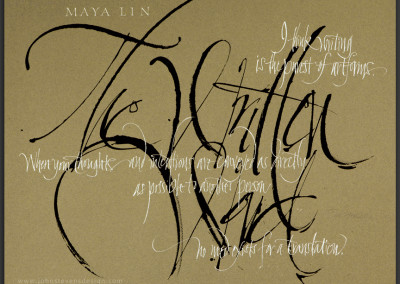 MAYA LIN
The Written
Word
I think writing
is the purest of artforms.
When your thoughts and intentions are conveyed as directly
as possible to another person
no need for a translation.
www.johnstevensdesign.com